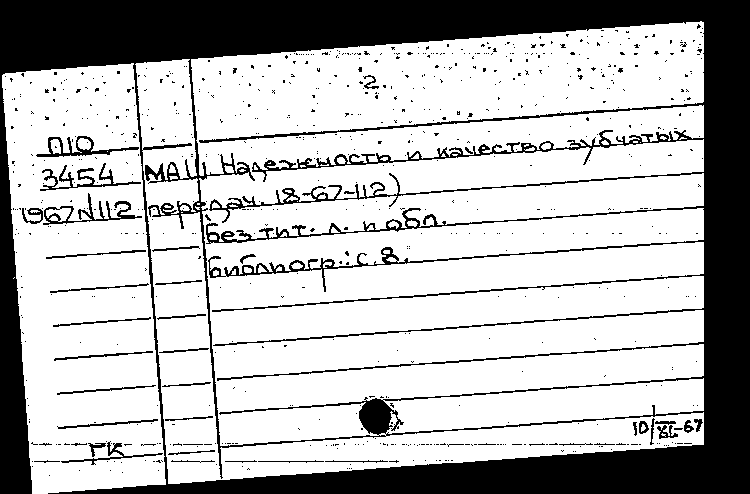 2.
П10
3454 МАШ Надежность и качество зубчатых
1967 N112 передач. 18-67-112)
без тит. л. и обл.
библиогр.: с. 8.
ГК
10/XI-67